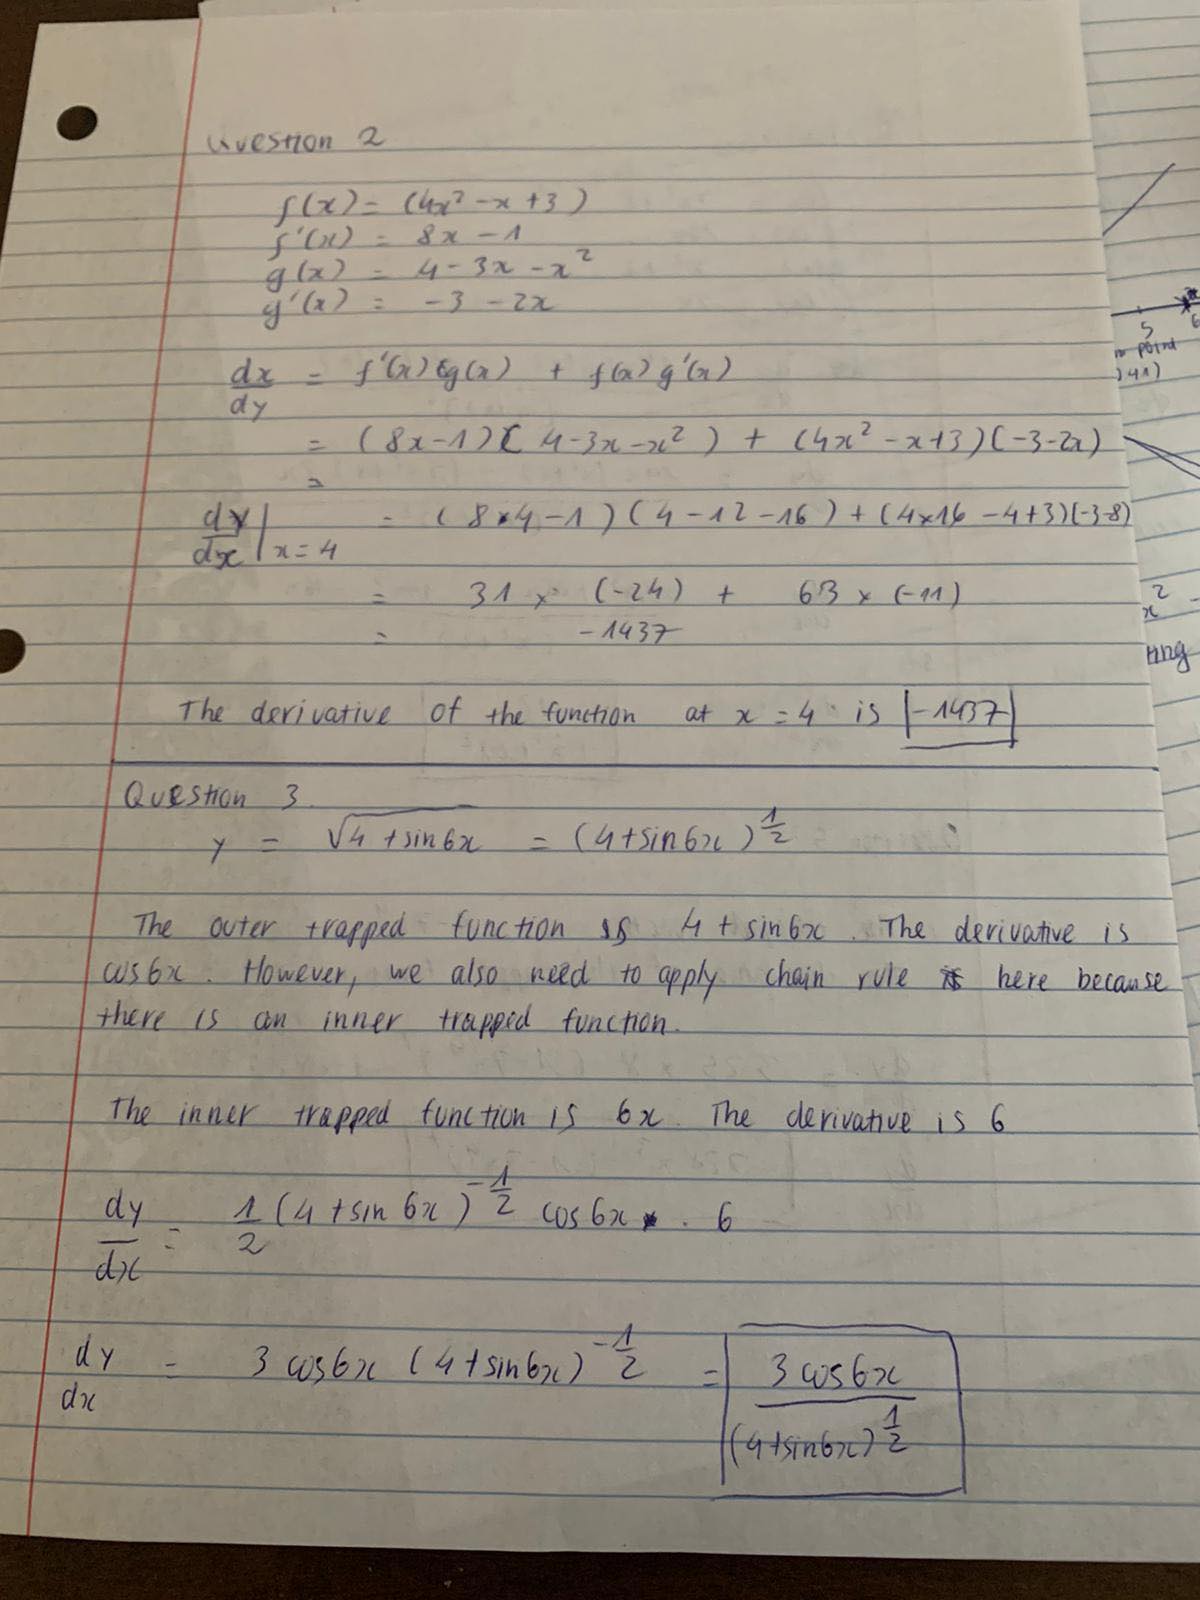 Question 2
f(x) = (4x² - x + 3)
f'(x) = 8x - 1
g(x) = 4 - 3x - x²
g'(x) = -3 - 2x
dx/dy = f'(x) g(x) + f(x) g'(x)
= (8x-1)(4-3x-x²) + (4x² - x+3)(-3-2x)
=
dy/dx | x=4 = (8×4-1)(4-12-16) + (4×16-4+3)(-3-8)
= 31 × (-24) + 63 × (-11)
= -1437
The derivative of the function at x = 4 is |-1437|
Question 3
y = √4 + sin6x = (4+sin6x)^1/2
The outer trapped function is 4 + sin6x. The derivative is
cos6x. However, we also need to apply chain rule here because
there is an inner trapped function.
The inner trapped function is 6x. The derivative is 6
dy/dx = 1/2 (4+sin 6x)^-1/2 cos6x · 6
dy/dx = 3 cos6x (4+sin6x)^-1/2 = 3 cos6x / (4+sin6x)^1/2
5
6
point
)41)
x²
ing